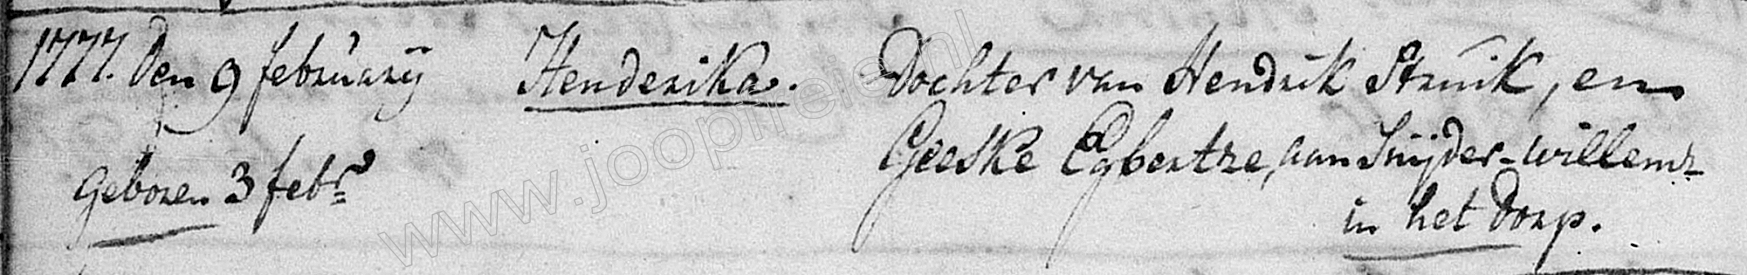 1777. Den 9 februarij Henderika. Dochter van Hendrik Struik, en
Geeske Egbertze, aan Snijder-willems
geboren 3 febr. in het Dorp.
www.joopreis.nl